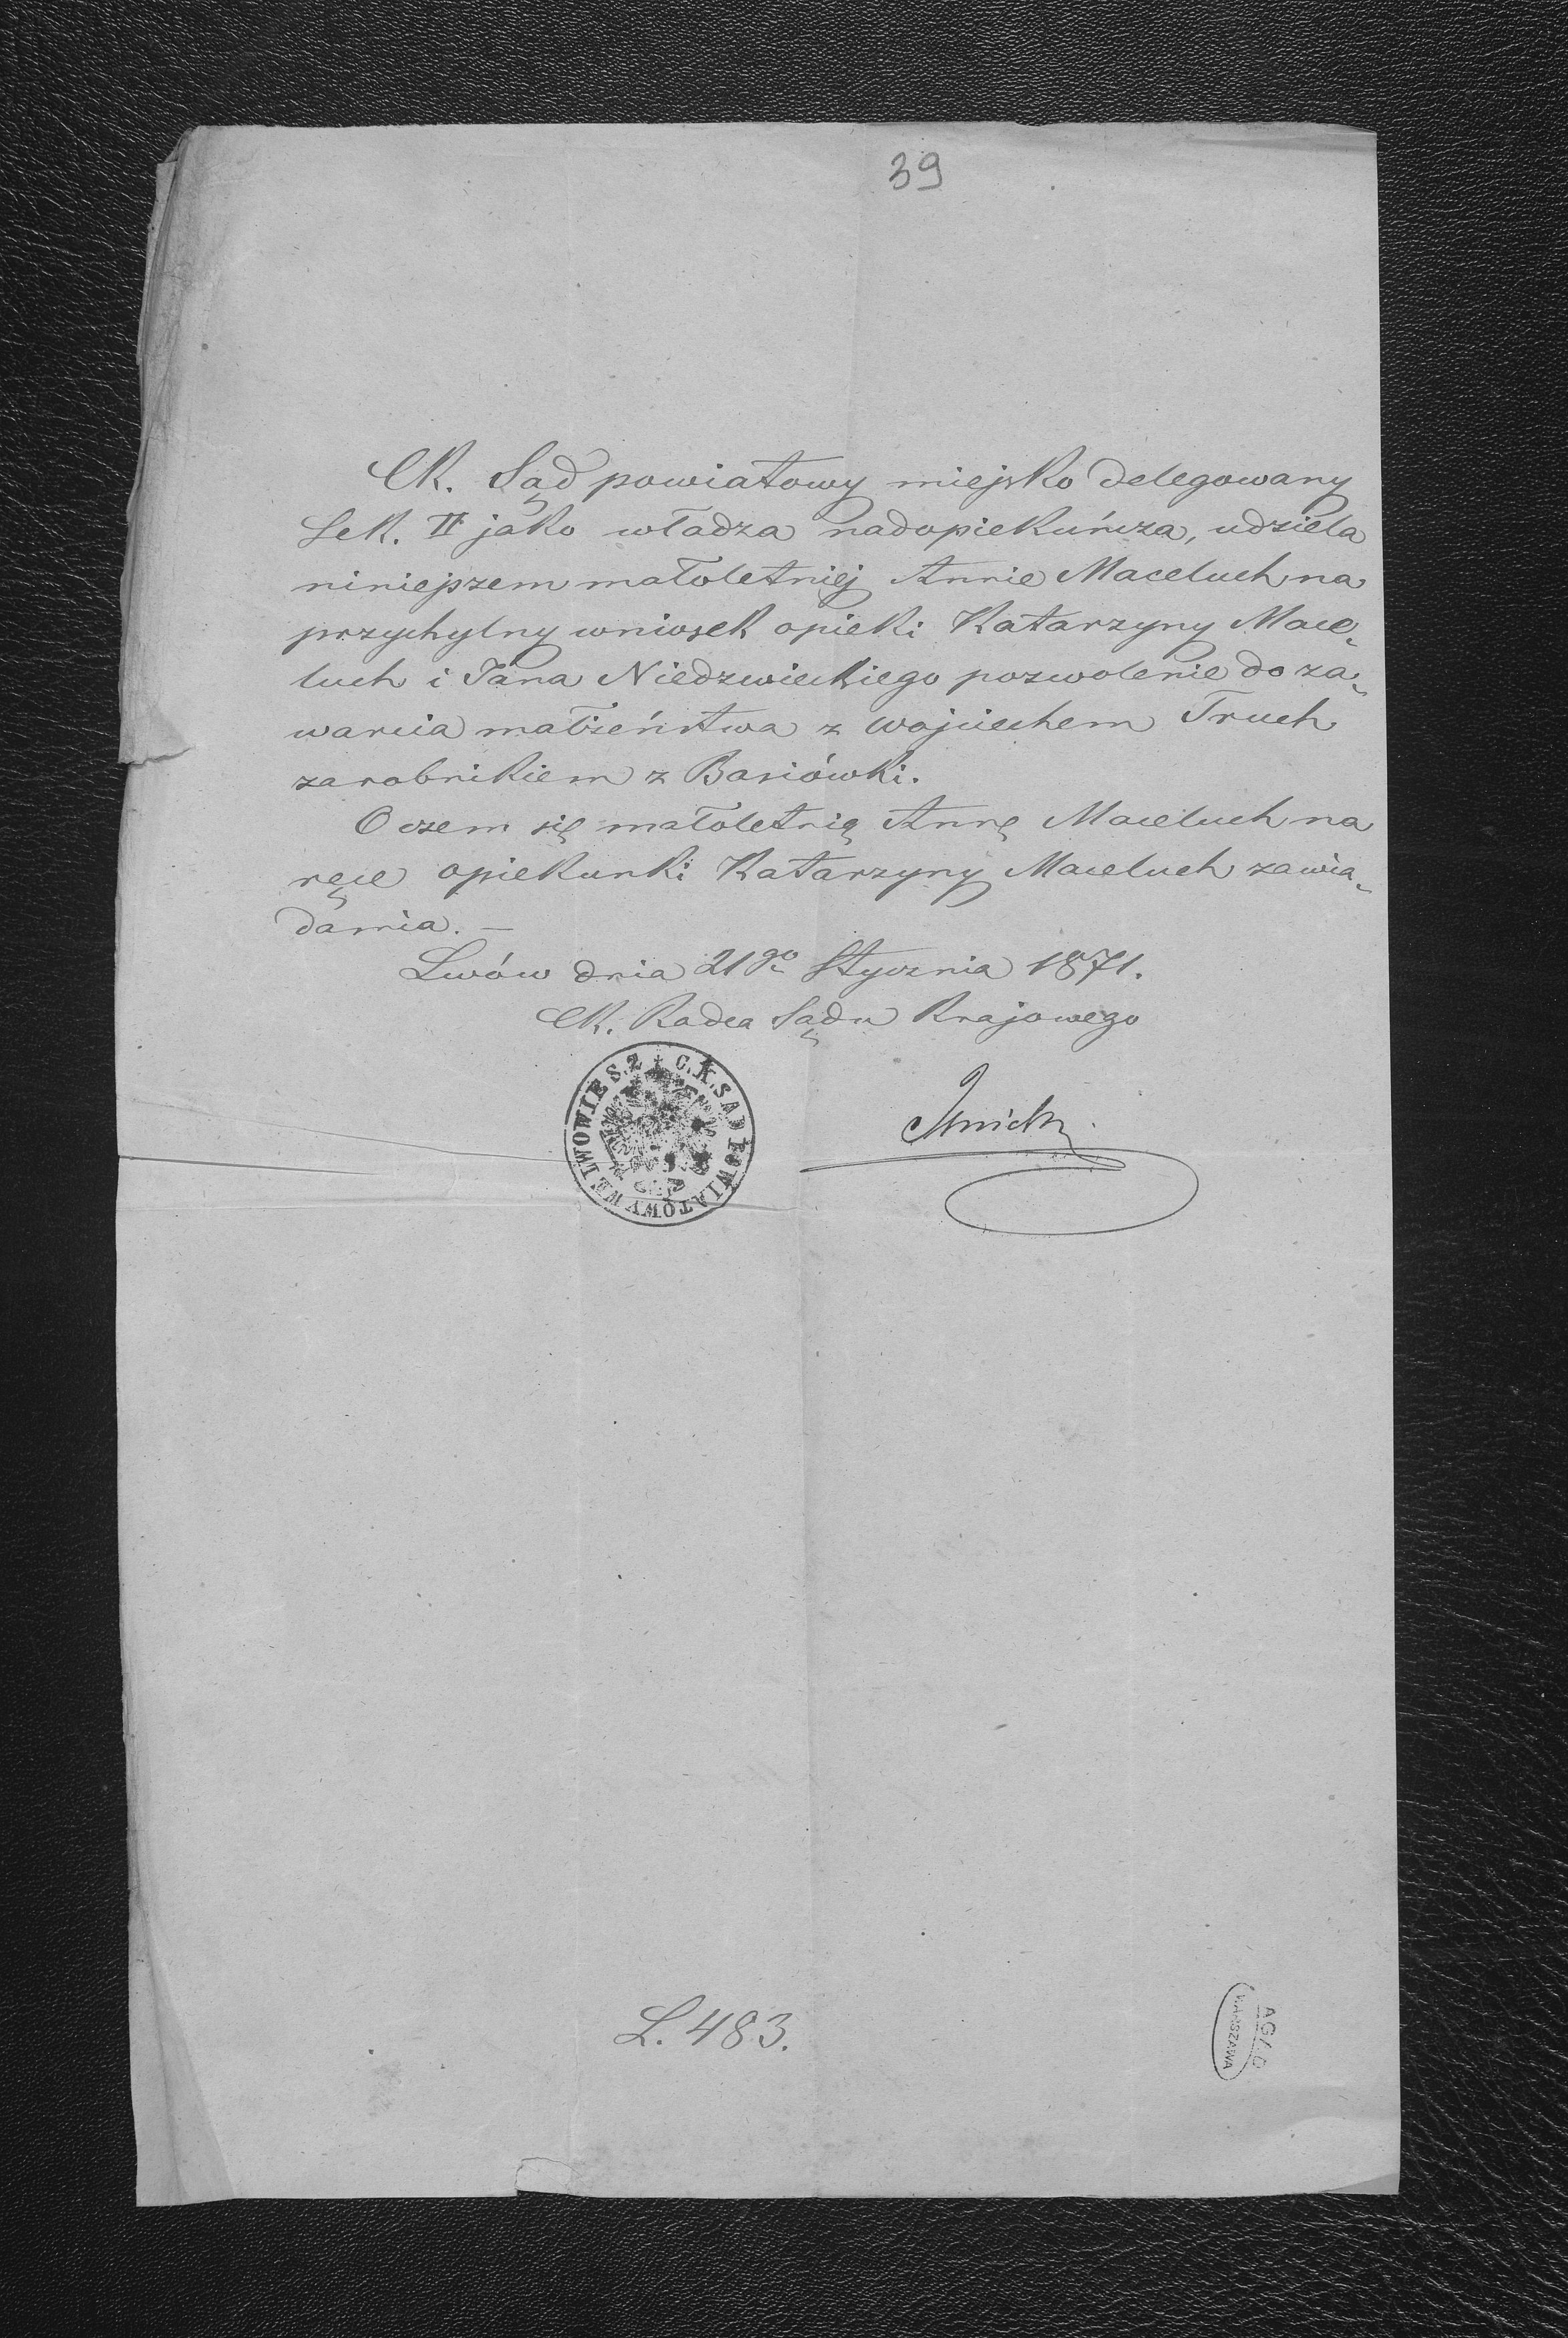 39
CK. Sąd powiatowy miejsko delegowany
Sek. II jako władza nadopiekuńcza, udziela
niniejszem małoletniej Annie Maceluch na
przychylny wniosek opieki Katarzyny Mace-
luch i Jana Niedzwieckiego pozwolenie do za-
warcia małżeństwa z Wojciechem Truch
zarobnikiem z Basiówki.
O czem się małoletnią Annę Maceluch na
ręce opiekunki Katarzyny Maceluch zawia-
damia. —
Lwów dnia 21go Stycznia 1871.
CK. Radca Sądu Krajowego
C.K. SĄD POWIATOWY WE LWOWIE S.2
L. 483.
AGAD
WARSZAWA